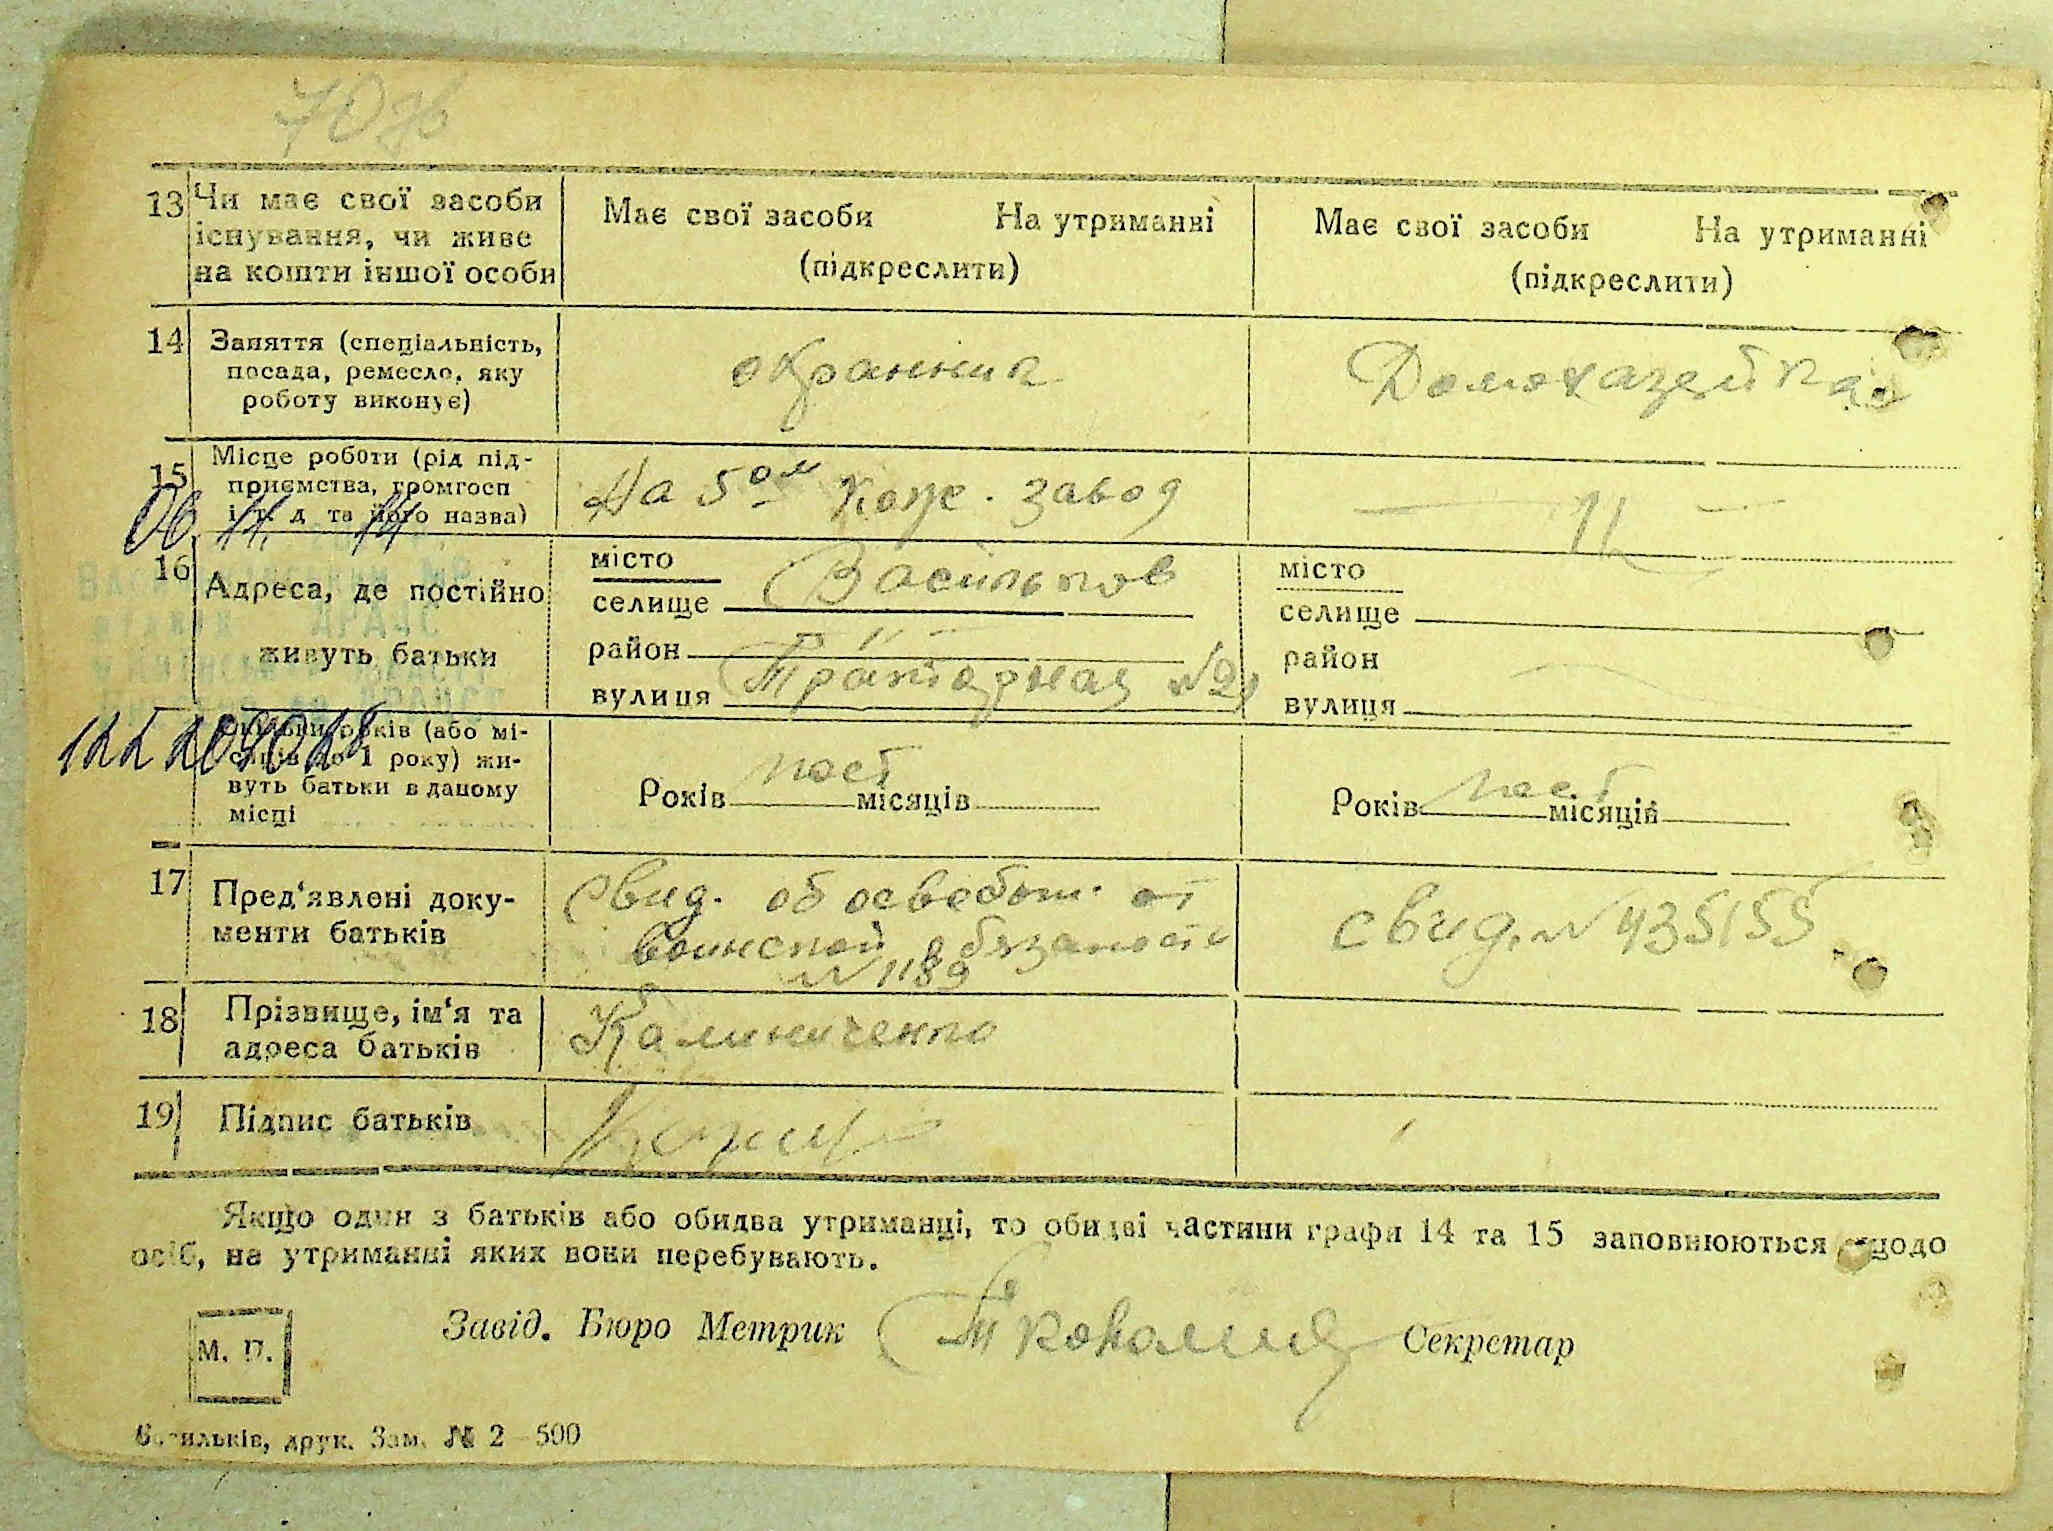 13 Чи має свої засоби існування, чи живе на кошти іншої особи
Має свої засоби На утриманні
(підкреслити)
Має свої засоби На утриманні
(підкреслити)
14 Заняття (спеціальність,
посада, ремесло, яку
роботу виконує)
охранник
Домохазейка
15 Місце роботи (рід під-
приємства, громгосп
і т. д та його назва)
На 5ом кож. завод
— 11 —
06 11. 14
16 Адреса, де постійно
живуть батьки
місто
селище Васильков
район — 11 —
вулиця №21
місто
селище
район
вулиця
Скільки років (або мі-
сяців до 1 року) жи-
вуть батьки в даному
місці
Років пост місяців
Років пост місяців
17 Пред'явлені доку-
менти батьків
Свид. об освобож. от
воинской обязаности
№ 1189
свид. № 435155
18 Прізвище, ім'я та
адреса батьків
Калиниченко
19 Підпис батьків
Якщо один з батьків або обидва утриманці, то обидві частини графи 14 та 15 заповнюються щодо
осіб, на утриманні яких вони перебувають.
М. П.
Завід. Бюро Метрик Секретар
Васильків, друк. Зам. № 2—500